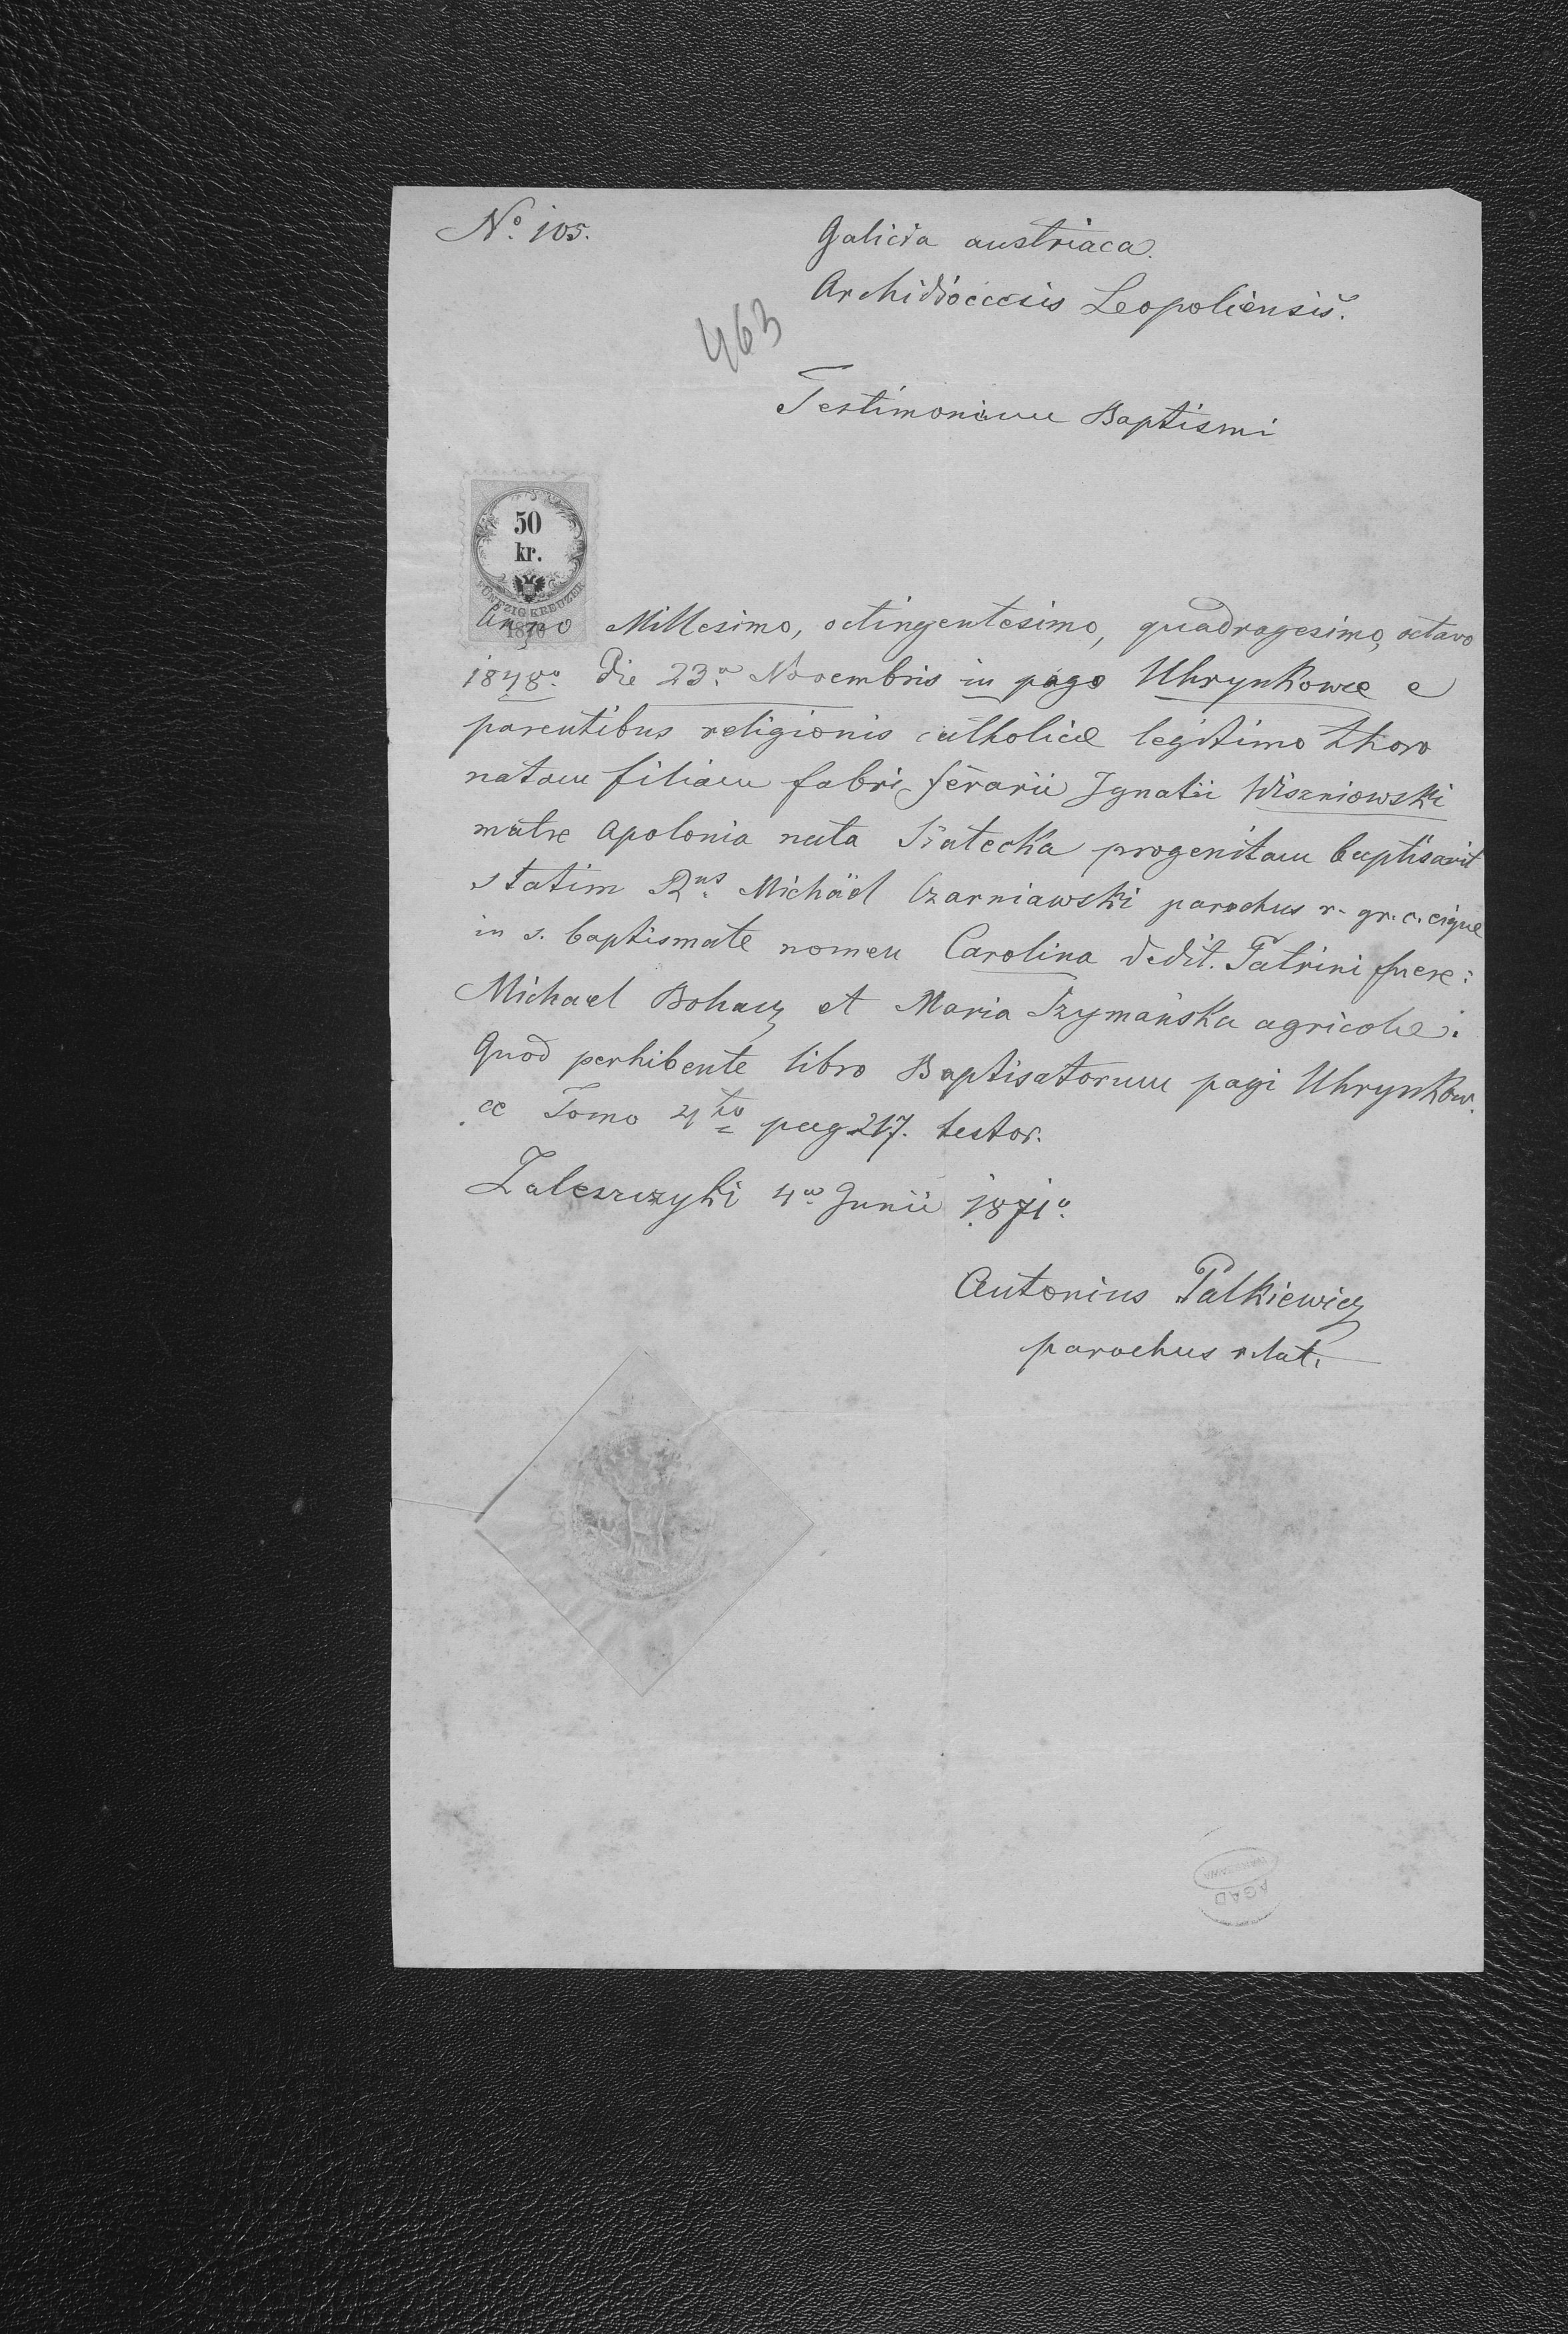 No. 105.
Galicia austriaca.
Archidioecesis Leopoliensis.
463
Testimonium Baptismi
50
kr.
FÜNFZIG KREUZER
1870
Anno Millesimo, octingentesimo, quadragesimo, octavo
1848o. die 23a. Novembris in pago Uhrynkowce e
parentibus religionis catholicæ legitimo thoro
natam filiam fabri ferarii Ignatii Wiszniowski
matre Apolonia nata progenitam baptisavit
statim Rns. Michäel Czarniawski parochus r. gr. c. eique
in s. baptismate nomen Carolina dedit. Patrini fuere:
Michael Bohacz et Maria Szymańska agricolæ.
Quod perhibente libro Baptisatorum pagi Uhrynkow.
ce Tomo 4to pag 217. testor.
Zaleszczyki 4a Junii 1871o.
Antonius Palkiewicz
parochus r. lat.
AGAD
WARSZAWA